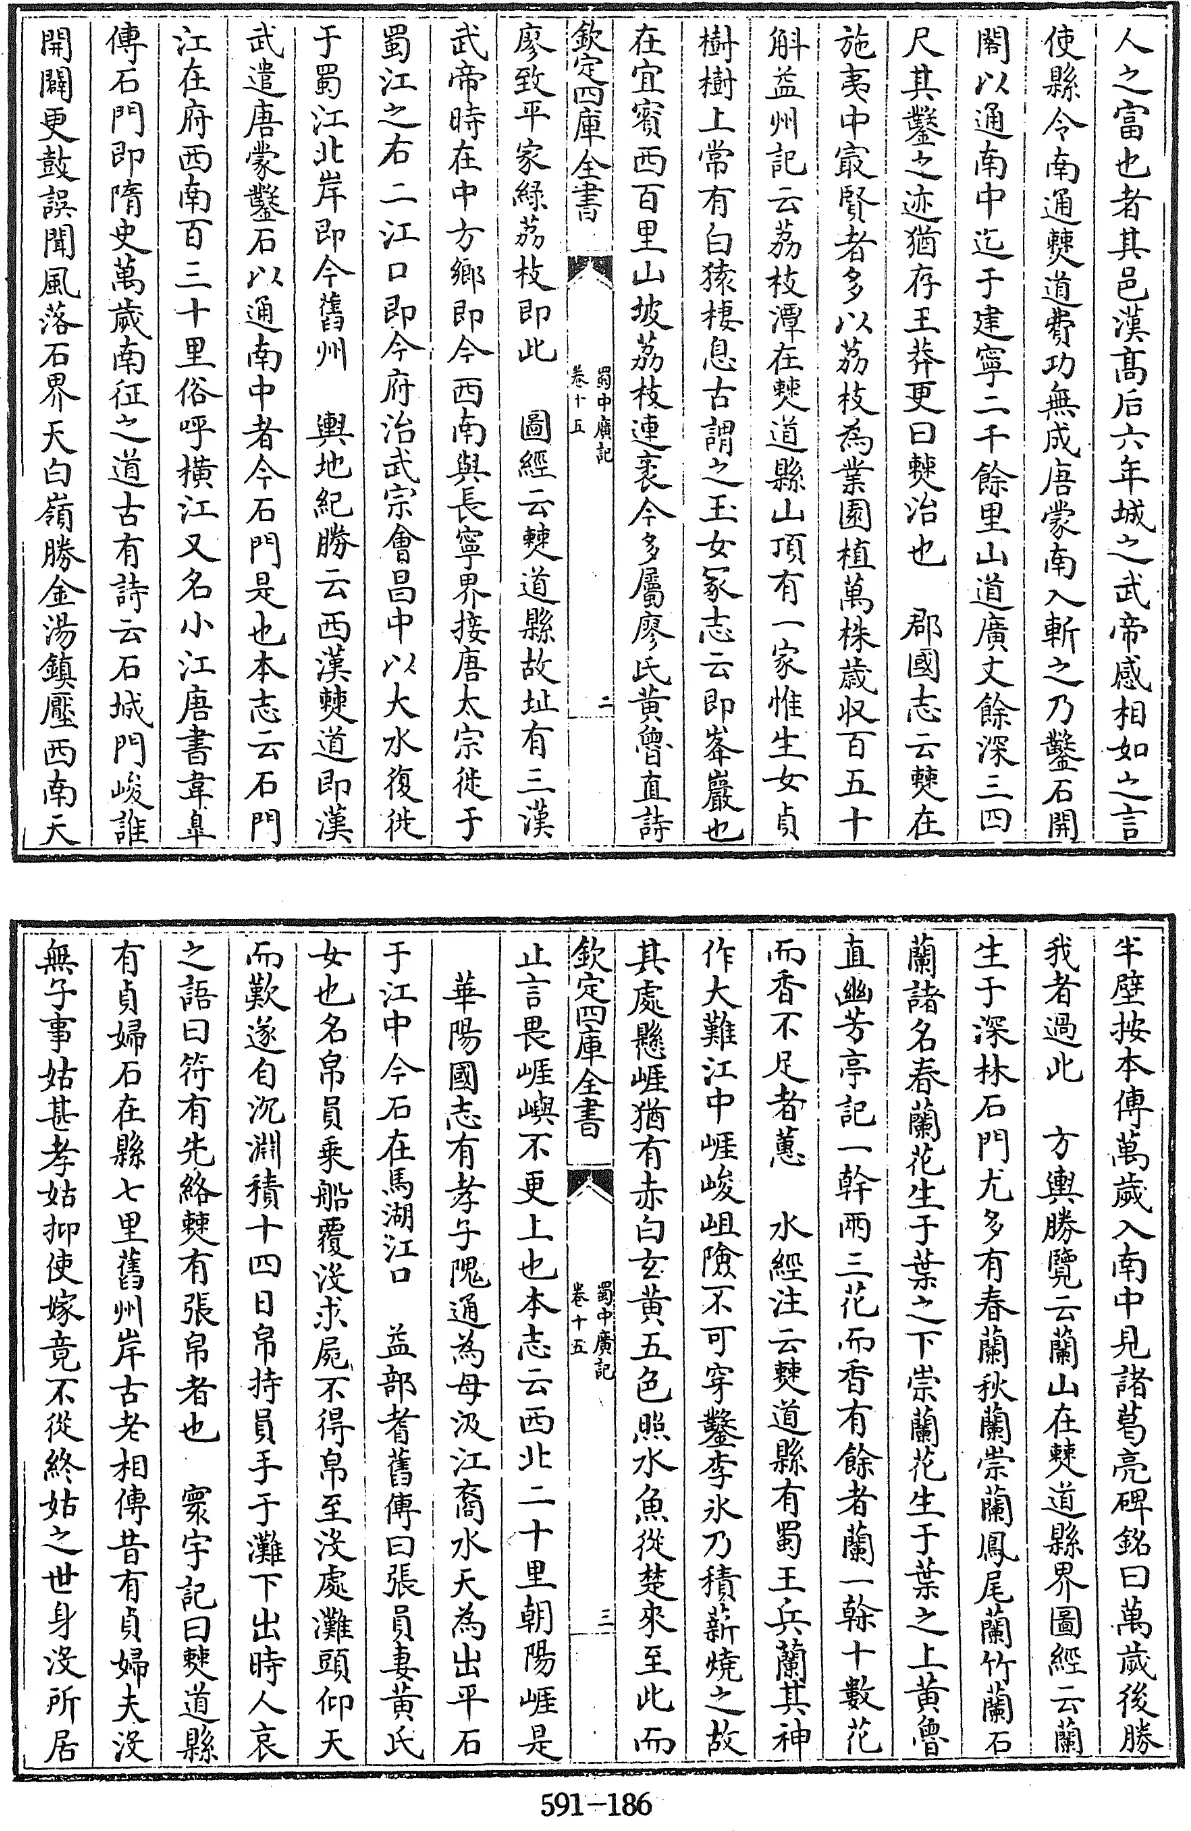 人之富也者其邑漢髙后六年城之武帝感相如之言
使縣令南通僰道費功無成唐蒙南入斬之乃鑿石開
閣以通南中迄于建寧二千餘里山道廣丈餘深三四
尺其鑿之迹猶存王莽更曰僰治也　郡國志云僰在
施夷中最賢者多以荔枝為業園植萬株歳収百五十
斛益州記云荔枝潭在僰道縣山頂有一家惟生女貞
樹樹上常有白猿棲息古謂之玉女冢志云即峯巖也
在宜賓西百里山坡荔枝連袤今多屬廖氏黄魯直詩
欽定四庫全書
蜀中廣記
卷十五
二
廖致平家綠荔枝即此　圖經云僰道縣故址有三漢
武帝時在中方鄉即今西南與長寧界接唐太宗徙于
蜀江之右二江口即今府治武宗會昌中以大水復徙
于蜀江北岸即今舊州　輿地紀勝云西漢僰道即漢
武遣唐蒙鑿石以通南中者今石門是也本志云石門
江在府西南百三十里俗呼橫江又名小江唐書韋臯
傳石門即隋史萬歲南征之道古有詩云石城門峻誰
開闢更鼓誤聞風落石界天白嶺勝金湯鎮壓西南天
半壁按本傳萬歲入南中見諸葛亮碑銘曰萬歲後勝
我者過此　方輿勝覽云蘭山在僰道縣界圖經云蘭
生于深林石門尤多有春蘭秋蘭崇蘭鳳尾蘭竹蘭石
蘭諸名春蘭花生于葉之下崇蘭花生于葉之上黄魯
直幽芳亭記一幹兩三花而香有餘者蘭一幹十數花
而香不足者蕙　水經注云僰道縣有蜀王兵蘭其神
作大難江中崕峻岨險不可穿鑿李氷乃積薪燒之故
其處懸崕猶有赤白玄黄五色照水魚從楚來至此而
欽定四庫全書
蜀中廣記
卷十五
三
止言畏崕嶼不更上也本志云西北二十里朝陽崕是
華陽國志有孝子隗通為母汲江裔水天為出平石
于江中今石在馬湖江口　益部耆舊傳曰張員妻黄氏
女也名帛員乘船覆沒求屍不得帛至沒處灘頭仰天
而歎遂自沉淵積十四日帛持員手于灘下出時人哀
之語曰符有先絡僰有張帛者也　寰宇記曰僰道縣
有貞婦石在縣七里舊州岸古老相傳昔有貞婦夫沒
無子事姑甚孝姑抑使嫁竟不從終姑之世身沒所居
591-186